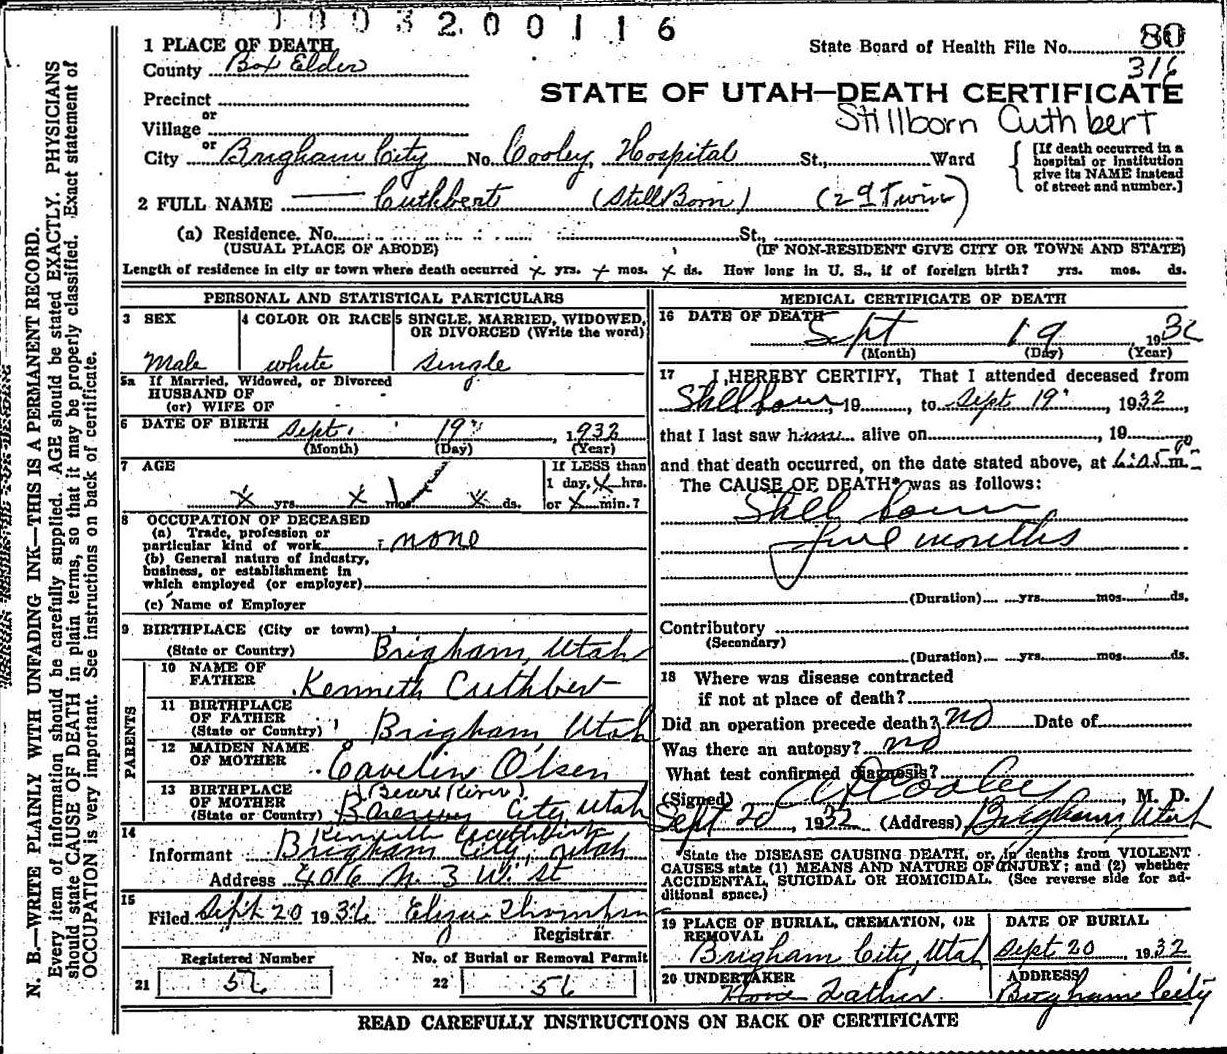 0003200116
1 PLACE OF DEATH
State Board of Health File No. 80
County Box Elder
316
STATE OF UTAH—DEATH CERTIFICATE
Precinct
or
Village
Stillborn Cuthbert
City or Brigham City No. Cooley Hospital St., Ward
[If death occurred in a hospital or institution give its NAME instead of street and number.]
2 FULL NAME Cuthbert (Still Born) (2d Twin)
(a) Residence. No. St.,
(USUAL PLACE OF ABODE) (IF NON-RESIDENT GIVE CITY OR TOWN AND STATE)
Length of residence in city or town where death occurred x yrs. x mos. x ds. How long in U. S., if of foreign birth? yrs. mos. ds.
PERSONAL AND STATISTICAL PARTICULARS
3 SEX
Male
4 COLOR OR RACE
white
5 SINGLE, MARRIED, WIDOWED, OR DIVORCED (Write the word)
single
5a If Married, Widowed, or Divorced
HUSBAND OF
(or) WIFE OF
6 DATE OF BIRTH Sept. 19 , 1932
(Month) (Day) (Year)
7 AGE
x yrs. x mos. x ds.
If LESS than
1 day, x hrs.
or x min.?
8 OCCUPATION OF DECEASED
(a) Trade, profession or
particular kind of work none
(b) General nature of industry,
business, or establishment in
which employed (or employer)
(c) Name of Employer
9 BIRTHPLACE (City or town)
(State or Country) Brigham, Utah
PARENTS
10 NAME OF FATHER Kenneth Cuthbert
11 BIRTHPLACE OF FATHER (State or Country) Brigham Utah
12 MAIDEN NAME OF MOTHER Eaveline Olsen
13 BIRTHPLACE OF MOTHER (State or Country) (Bear River) City, Utah
14 Kenneth Cuthbert
Informant Brigham City, Utah
Address 406 N. 3 W. St
15
Filed Sept 20 1932 Thompson
Registrar.
Registered Number
No. of Burial or Removal Permit
21 56
22 56
MEDICAL CERTIFICATE OF DEATH
16 DATE OF DEATH Sept 19 1932
(Month) (Day) (Year)
17 I HEREBY CERTIFY, That I attended deceased from
Stillborn, 19 , to Sept 19, 1932,
that I last saw h alive on , 19
and that death occurred, on the date stated above, at 6:05 m.
The CAUSE OF DEATH* was as follows:
Still born
five months
(Duration) yrs. mos. ds.
Contributory
(Secondary)
(Duration) yrs. mos. ds.
18 Where was disease contracted
if not at place of death?
Did an operation precede death? no Date of
Was there an autopsy? no
What test confirmed diagnosis?
(Signed) Cooley, M. D.
Sept 20, 1932 (Address) Brigham, Utah
*State the DISEASE CAUSING DEATH, or, in deaths from VIOLENT
CAUSES state (1) MEANS AND NATURE OF INJURY; and (2) whether
ACCIDENTAL, SUICIDAL OR HOMICIDAL. (See reverse side for ad-
ditional space.)
19 PLACE OF BURIAL, CREMATION, OR REMOVAL
Brigham City, Utah
DATE OF BURIAL
Sept 20, 1932
20 UNDERTAKER
None Father.
ADDRESS
Brigham City
READ CAREFULLY INSTRUCTIONS ON BACK OF CERTIFICATE
N. B.—WRITE PLAINLY WITH UNFADING INK—THIS IS A PERMANENT RECORD.
Every item of information should be carefully supplied. AGE should be stated EXACTLY. PHYSICIANS
should state CAUSE OF DEATH in plain terms, so that it may be properly classified. Exact statement of
OCCUPATION is very important. See instructions on back of certificate.
MARGIN RESERVED FOR BINDING